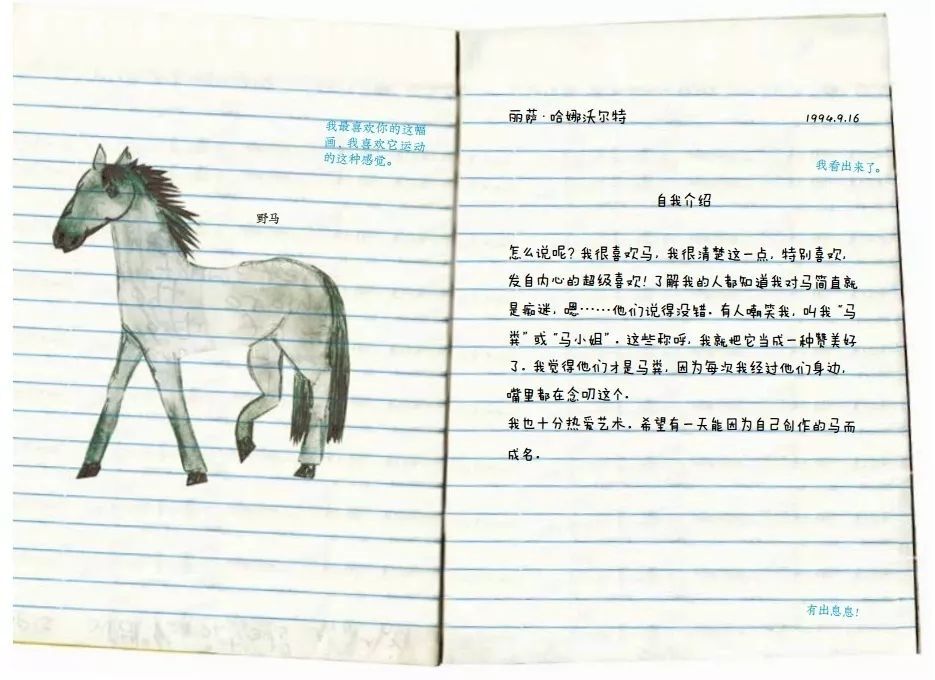 我最喜欢你的这幅
画，我喜欢它运动
的这种感觉。
野马
丽萨·哈娜沃尔特
1994.9.16
我看出来了。
自我介绍
怎么说呢？我很喜欢马，我很清楚这一点，特别喜欢，
发自内心的超级喜欢！了解我的人都知道我对马简直就
是痴迷，嗯……他们说得没错。有人嘲笑我，叫我“马
粪”或“马小姐”。这些称呼，我就把它当成一种赞美好
了。我觉得他们才是马粪，因为每次我经过他们身边，
嘴里都在念叨这个。
我也十分热爱艺术。希望有一天能因为自己创作的马而
成名。
有出息息！